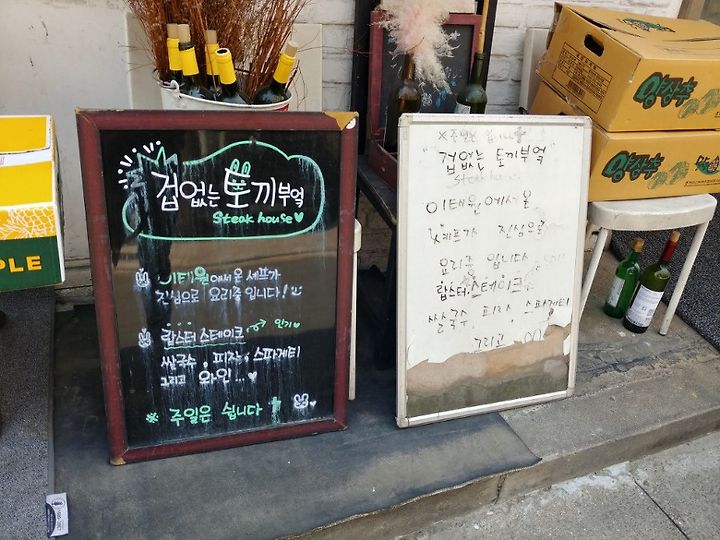 겁없는 토끼부엌
Steak house
이태원에서 온 셰프가
진심으로 요리중 입니다!
랍스터 스테이크 인기
쌀국수, 피자, 스파게티
그리고 와인...
※ 주일은 쉽니다
"겁없는 토끼부엌"
Steak house
이태원에서 온
셰프가 진심으로
요리중 입니다
랍스터 스테이크
쌀국수, 피자, 스파게티
그리고
양상추
양상추
PLE